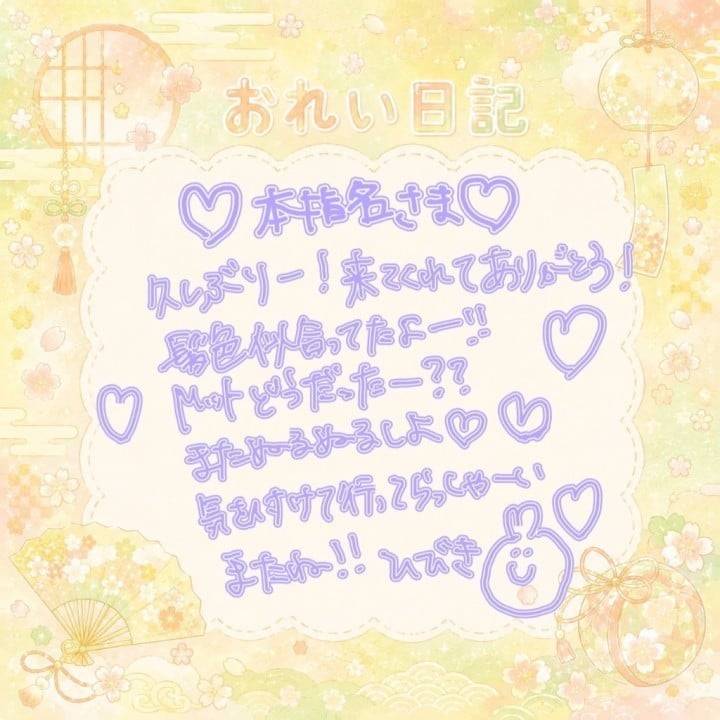 おれい日記
♡本指名さま♡
久しぶりー!来てくれてありがとう!
髪色似合ってたよー!!
Mットどうだったー??
またぬるぬるしよ♡
気をつけて行ってらっしゃーい
またね!! ひびき